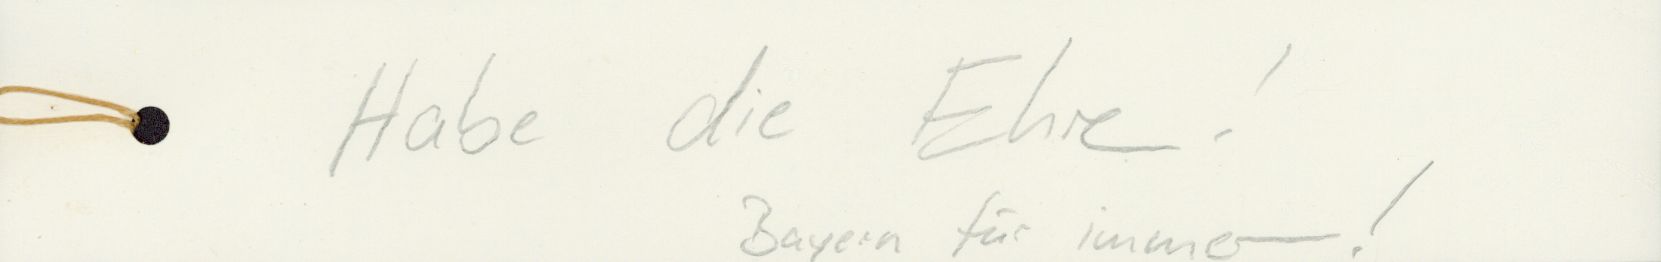 Habe die Ehre!
Bayern für immer!